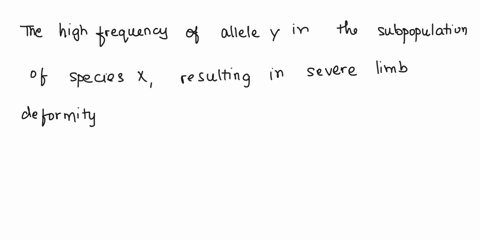 The high frequency of allele y in the subpopulation
of species X, resulting in severe limb
deformity